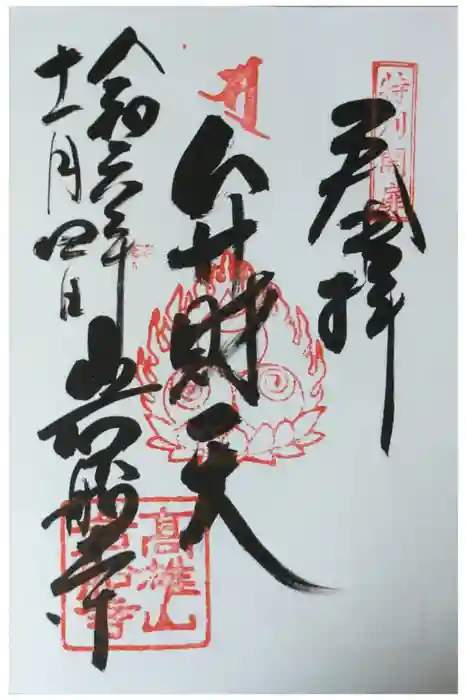 特別開扉
奉拝
弁財天
令和六年
十一月四日
岩船寺
高雄山
岩船寺